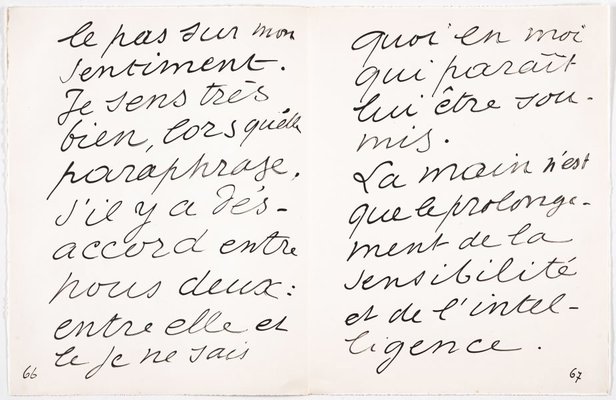 le pas sur mon
sentiment.
Je sens très
bien, lorsqu'elle
paraphrase,
s'il y a dés-
accord entre
nous deux:
entre elle et
le je ne sais
66
quoi en moi
qui paraît
lui être sou-
mis.
La main n'est
que le prolonge-
ment de la
sensibilité
et de l'intel-
ligence.
67